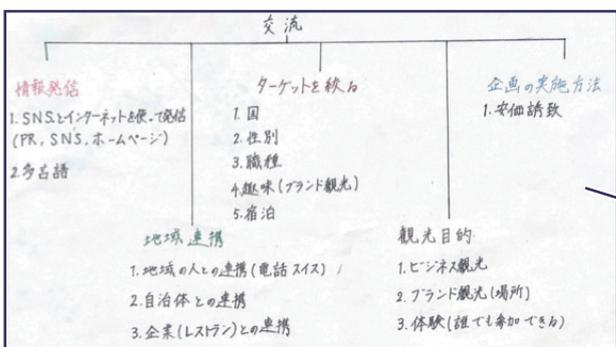 交流
情報発信
1. SNSとインターネットを使って発信
(PR, SNS, ホームページ)
2. 多言語
ターゲットを絞る
1. 国
2. 性別
3. 職種
4. 趣味(ブランド観光)
5. 宿泊
企画の実施方法
1. 安価誘致
地域連携
1. 地域の人との連携(電話スイス)
2. 自治体との連携
3. 企業(レストラン)との連携
観光目的
1. ビジネス観光
2. ブランド観光(場所)
3. 体験(誰でも参加できる)